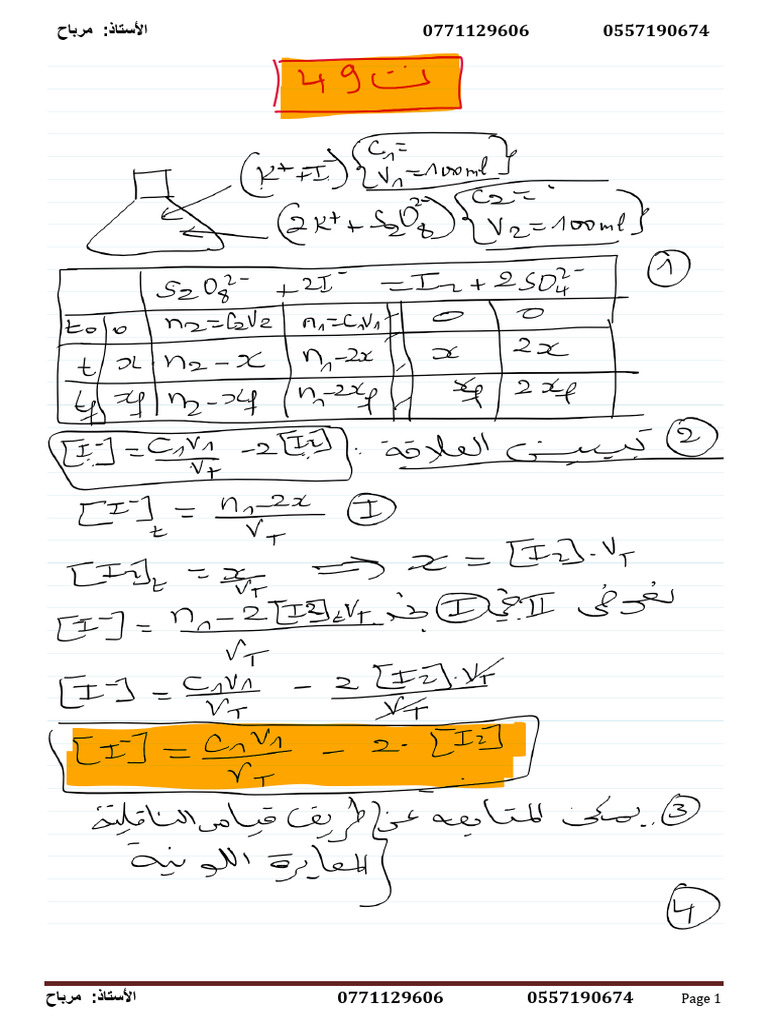 الأستاذ: مرباح 0771129606 0557190674
ت 49
(K⁺+I⁻) { C₁= 
V₁=100ml }
(2K⁺+S₂O₈²⁻) { C₂= 
V₂=100ml }
①
S₂O₈²⁻ + 2I⁻ = I₂ + 2SO₄²⁻
t₀ 0 n₂=C₂V₂ n₁=C₁V₁ 0 0
t x n₂-x n₁-2x x 2x
tf xf n₂-xf n₁-2xf xf 2xf
② تبيين العلاقة: [I⁻] = C₁V₁/V_T - 2[I₂]
[I⁻]t = n₁-2x/V_T Ⓘ
[I₂]t = x/V_T ⟹ x = [I₂]·V_T
نعوض II في Ⓘ نجد
[I⁻] = n₁-2[I₂]tV_T/V_T
[I⁻] = C₁V₁/V_T - 2[I₂]·V_T/V_T
[I⁻] = C₁V₁/V_T - 2·[I₂]
③.. يمكن المتابعه عن { طريق قياس الناقلية
المعايرة اللونية
④
الأستاذ: مرباح 0771129606 0557190674 Page 1